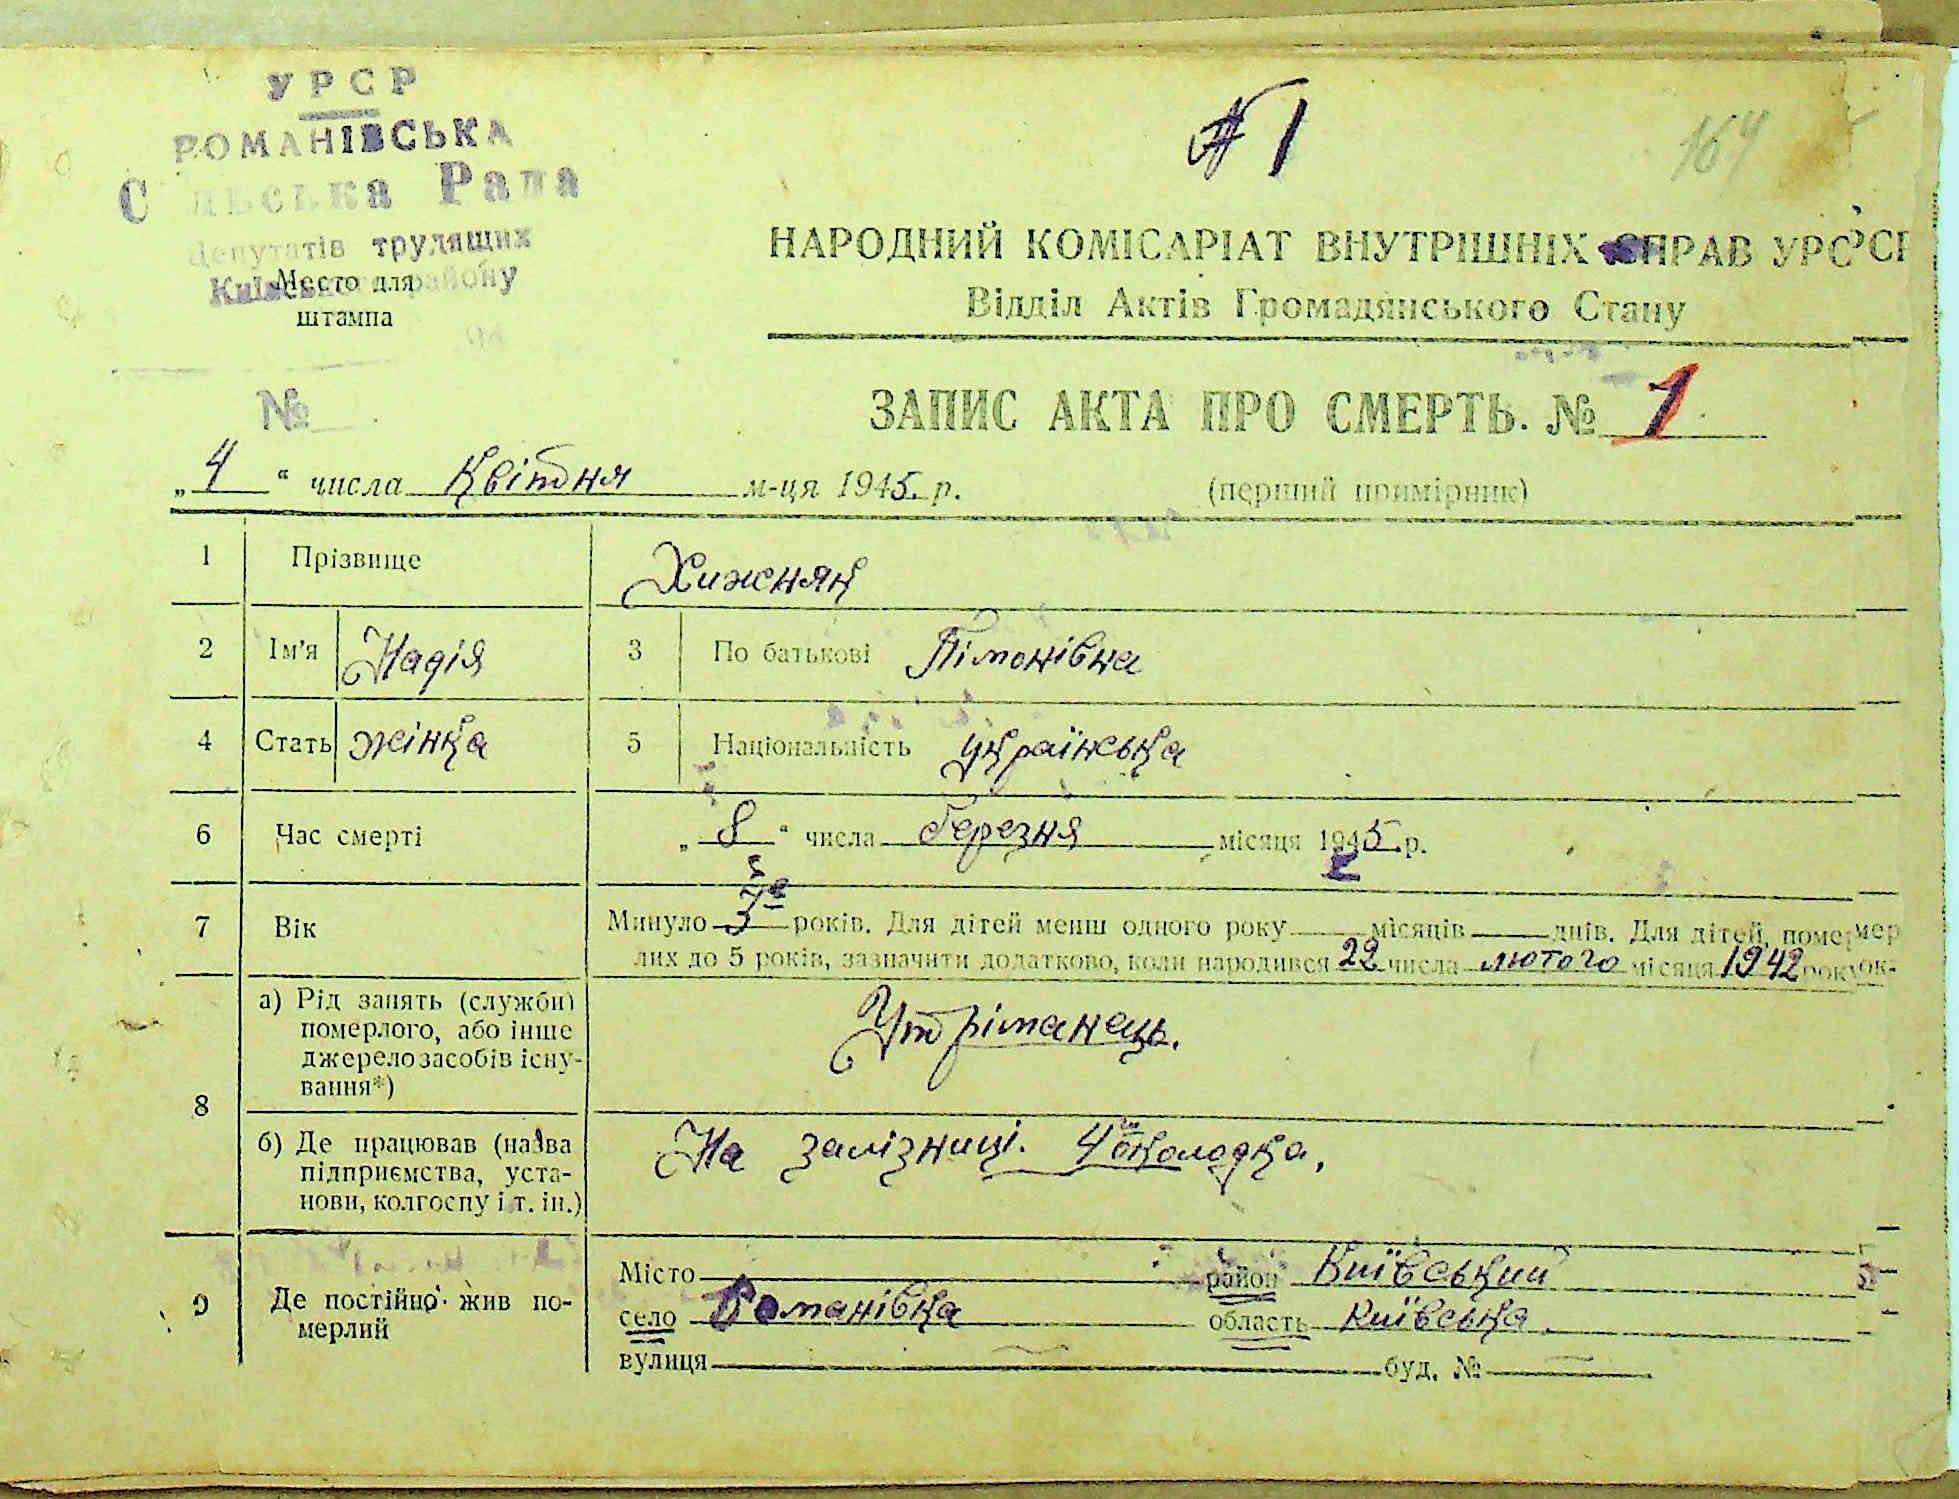 УРСР
РОМАНІВСЬКА
Сільська Рада
Депутатів трудящих
Київського району
Место для
штампа
№ 1
164
НАРОДНИЙ КОМІСАРІАТ ВНУТРІШНІХ СПРАВ УРСР
Відділ Актів Громадянського Стану
№
ЗАПИС АКТА ПРО СМЕРТЬ. № 1
„4“ числа Квітня м-ця 1945. р. (перший примірник)
1 Прізвище Хижняк
2 Ім'я Надія 3 По батькові Пімонівна
4 Стать жінка 5 Національність українська
6 Час смерті „8“ числа березня місяця 1945. р.
7 Вік Минуло 3 років. Для дітей менш одного року місяців днів. Для дітей, помер-
лих до 5 років, зазначити додатково, коли народився 22 числа лютого місяця 1942 року
8 а) Рід занять (служби)
померлого, або інше
джерело засобів існу-
вання*)
Утріманець.
б) Де працював (назва
підприємства, уста-
нови, колгоспу і т. ін.)
На залізниці. 4 околодка.
9 Де постійно жив по-
мерлий
Місто район Київський
село Романівка область Київська.
вулиця буд. №